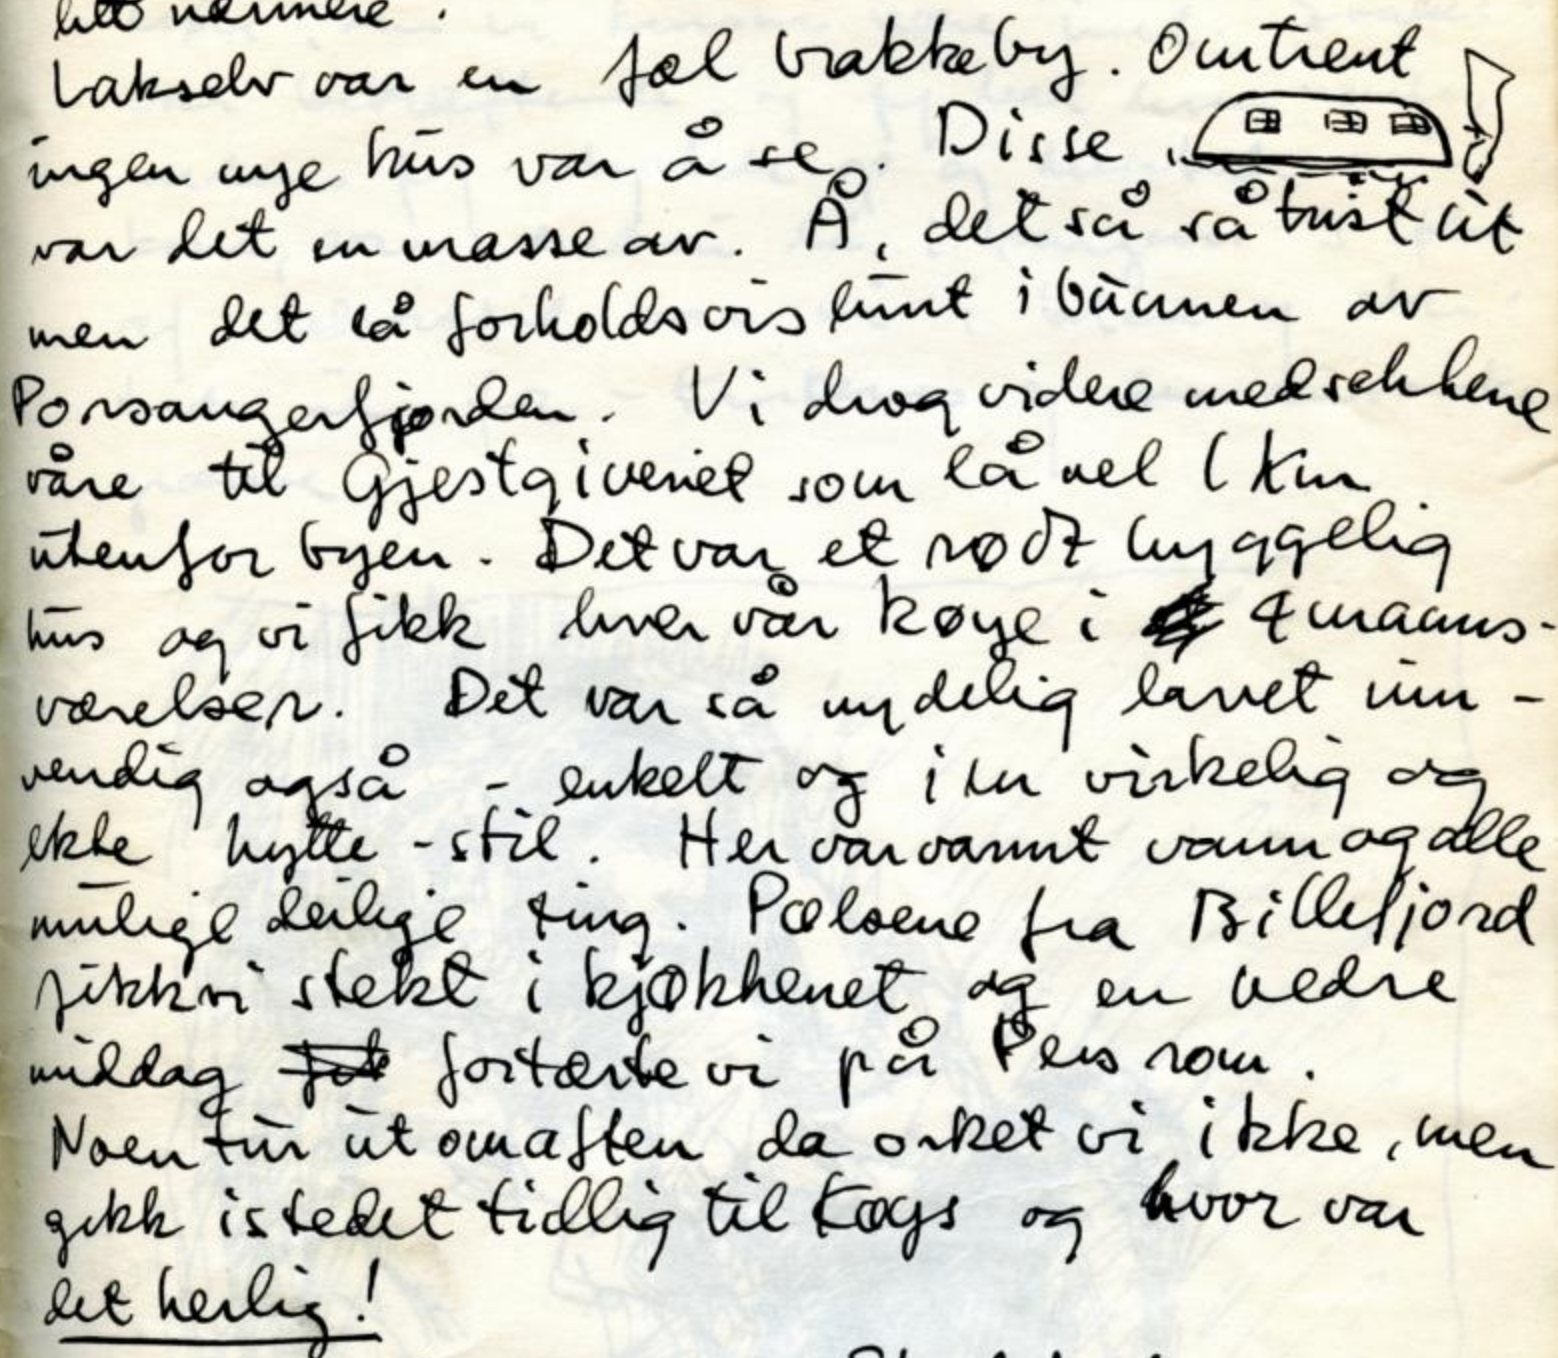 litt nærmere.
Lakselv var en fæl brakkeby. Omtrent
ingen nye hus var å se. Disse
var det en masse av. Å, det så så trist ut
men det lå forholdsvis lunt i bunnen av
Porsangerfjorden. Vi drog videre med sekkene
våre til Gjestgiveriet som lå vel 1 km
utenfor byen. Det var et rødt hyggelig
hus og vi fikk hver vår køye i 4 manns-
værelser. Det var så nydelig lavet inn-
vendig også - enkelt og i en virkelig og
ekte hytte-stil. Her var varmt vann og alle
mulige deilige ting. Pølsene fra Billefjord
fikk vi stekt i kjøkkenet og en bedre
middag fortærte vi på Peis rom.
Noen tur ut om aften da orket vi ikke, men
gikk istedet tidlig til køys og hvor var
det herlig!